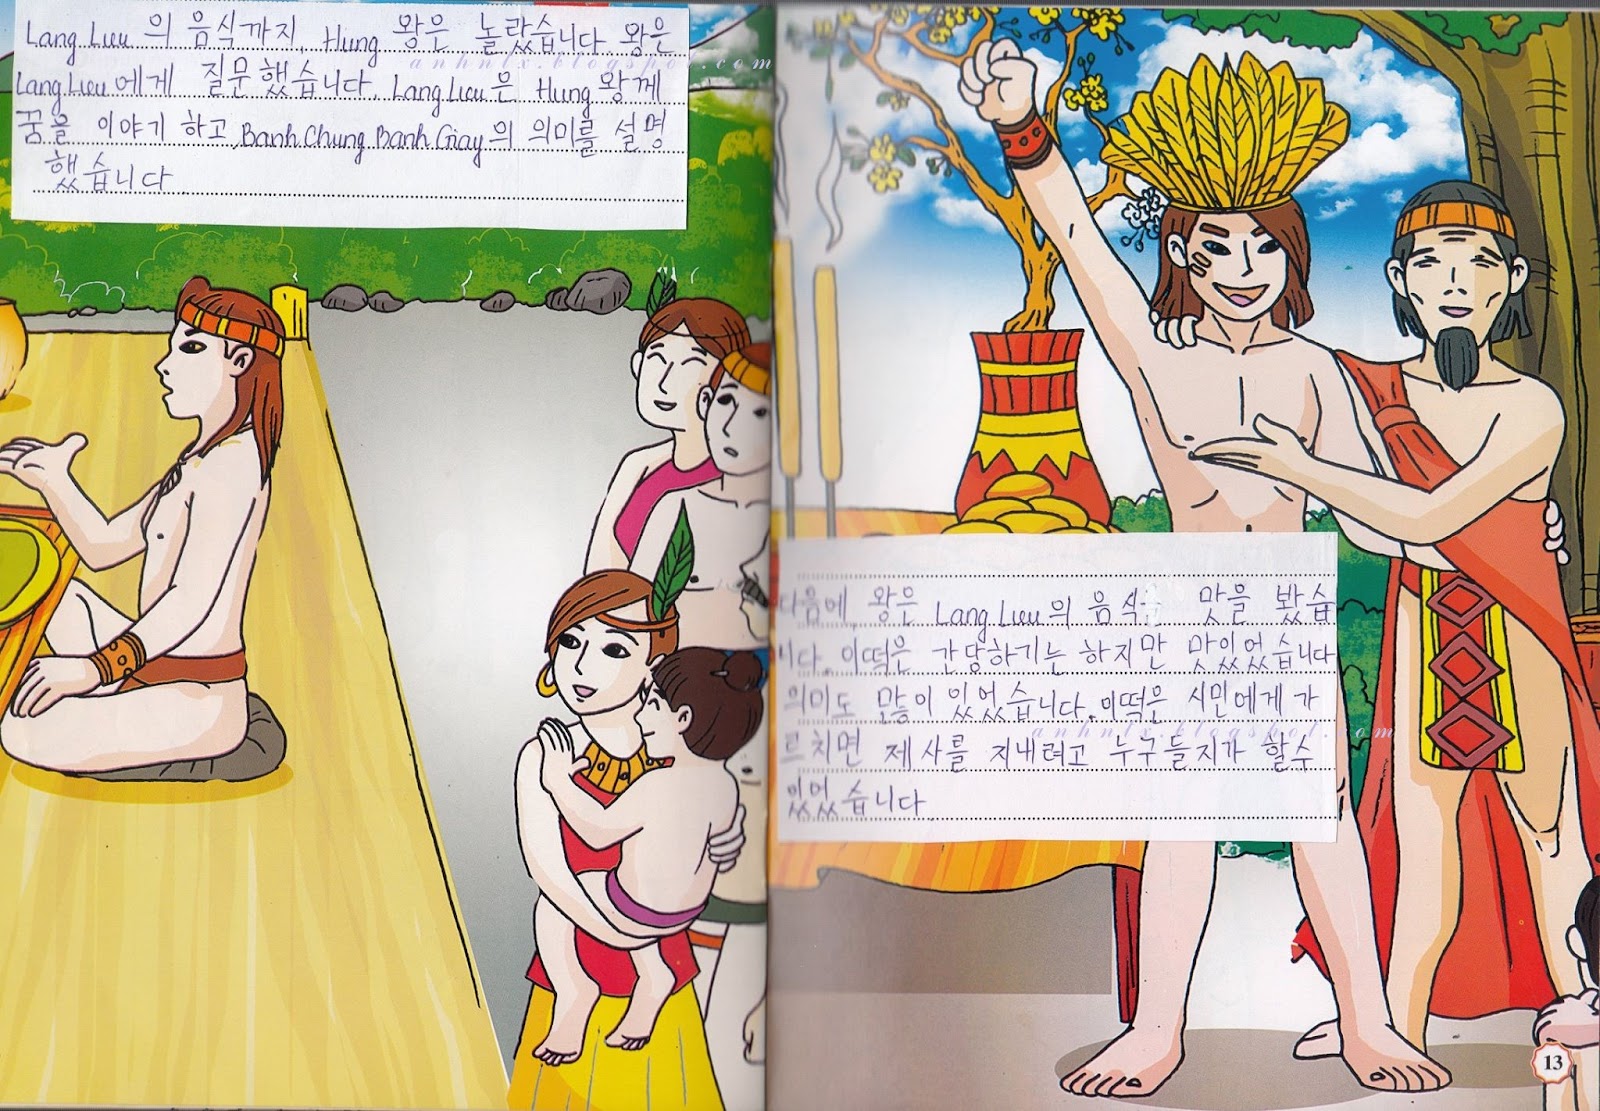 Lang Lieu 의 음식까지, Hung 왕은 놀랐습니다. 왕은
anhnlx.blogspot.com
Lang Lieu 에게 질문했습니다. Lang Lieu 은 Hung 왕께
꿈을 이야기 하고, Banh Chung Banh Giay 의 의미를 설명
했습니다.
다음에 왕은 Lang Lieu 의 음식 맛을 봤습
니다. 이떡은 간당하기는 하지만 맛있었습니다
의미도 많이 있었습니다. 이떡은 시민에게 가
anhnlx.blogspot.com
르치면 제사를 지내려고 누구들지가 할수
있었습니다.
13